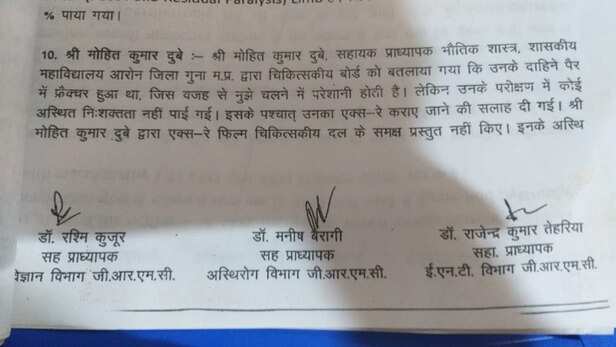 Residual Paralysis) Limb
% पाया गया।
10. श्री मोहित कुमार दुबे :– श्री मोहित कुमार दुबे, सहायक प्राध्यापक भौतिक शास्त्र, शासकीय
महाविद्यालय आरोन जिला गुना म.प्र. द्वारा चिकित्सकीय बोर्ड को बतलाया गया कि उनके दाहिने पैर
में फ्रैक्चर हुआ था, जिस वजह से मुझे चलने में परेशानी होती है। लेकिन उनके परीक्षण में कोई
अस्थित निःशक्तता नहीं पाई गई। इसके पश्चात् उनका एक्स–रे कराए जाने की सलाह दी गई। श्री
मोहित कुमार दुबे द्वारा एक्स–रे फिल्म चिकित्सकीय दल के समक्ष प्रस्तुत नहीं किए। इनके अस्थि
डॉ. रश्मि कुजूर डॉ. मनीष बैरागी डॉ. राजेन्द्र कुमार तेहरिया
सह प्राध्यापक सह प्राध्यापक सहा. प्राध्यापक
विज्ञान विभाग जी.आर.एम.सी. अस्थिरोग विभाग जी.आर.एम.सी. ई.एन.टी. विभाग जी.आर.एम.सी.